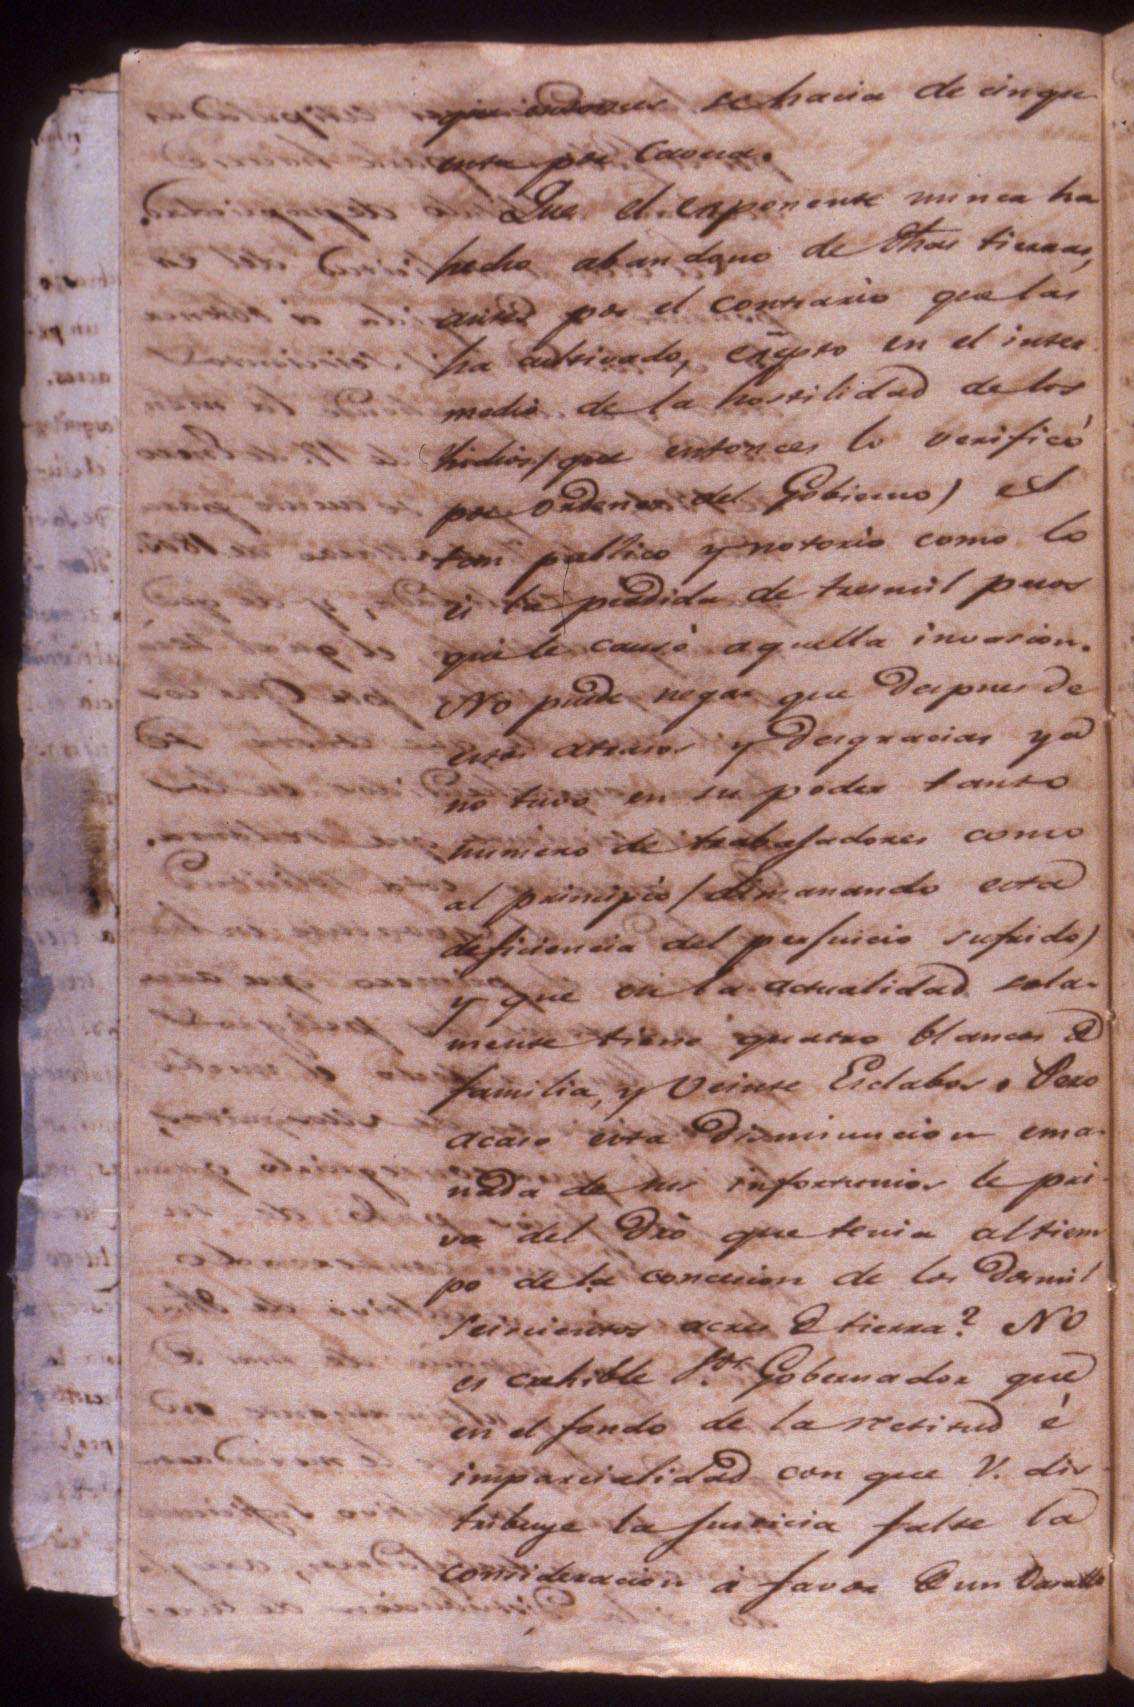 que entonces se hacia de cinqu-
enta por Cavesa.
Que el exponente nunca ha
hecho abandono de dhas tierras,
antes por el contrario que las
ha cultivado, exepto en el inter
medio de la hostilidad de los
Yndios (que entonces lo verificó
por ordenes del Gobierno) es
tan publico y notorio como lo
es la perdida de tresmil pesos
que le causó aquella invasion.
No puede negar que despues de
estos atrasos y desgracias ya
no tuvo en su poder tanto
numero de trabajadores como
al principio (dimanando esta
deficiencia del perjuicio sufrido)
y que en la actualidad sola-
mente tiene quatro blancos de
familia, y veinte Esclabos. Pero
acaso esta disminucion ema-
nada de sus infortunios le pri-
va del dro que tenia al tiem
po de la concesion de los dosmil
seiscientos acres de tierra? No
es crehible Sor. Gobernador que
en el fondo de la rectitud é
imparcialidad con que V. dis-
tribuye la justicia falte la
consideracion á favor de un Vasallo